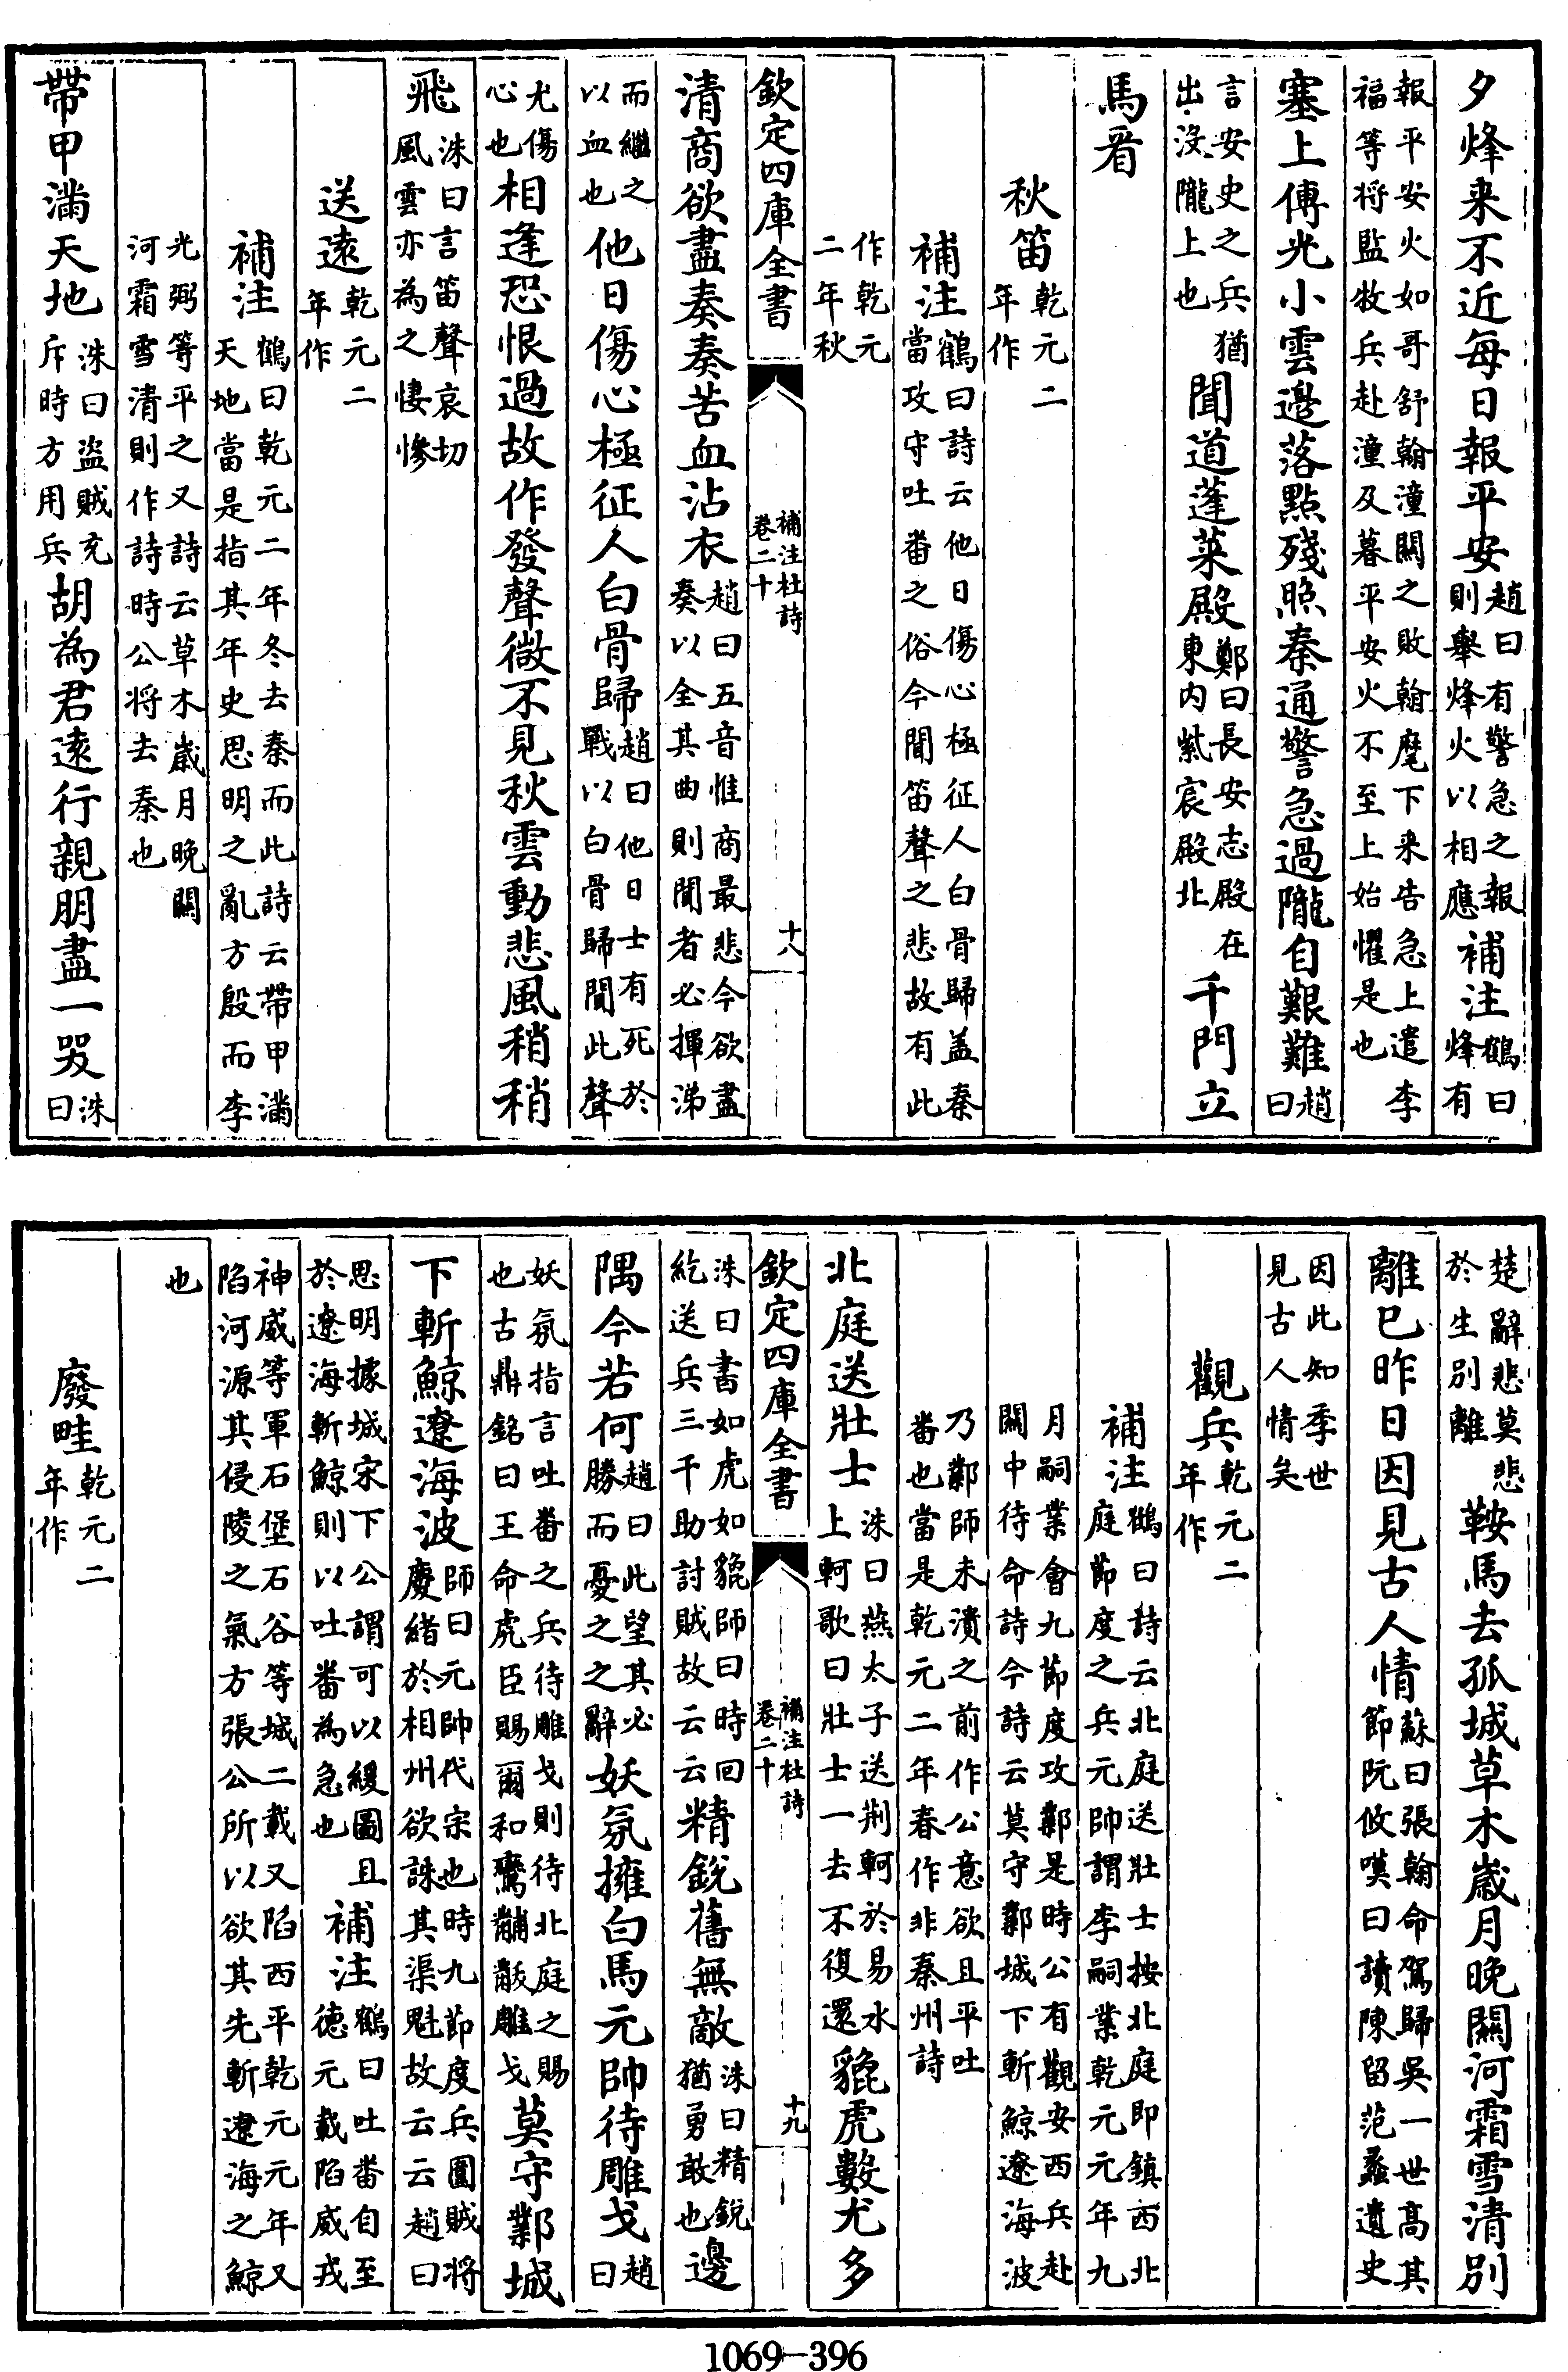 夕烽来不近每日報平安趙曰有警急之報則舉烽火以相應補注鶴曰烽有
報平安火如哥舒翰潼關之敗翰麾下来告急上遣李福等将監牧兵赴潼及暮平安火不至上始懼是也
塞上傳光小雲邉落點殘照秦通警急過隴自艱難趙曰
言安史之兵猶出没隴上也聞道蓬莱殿鄭曰長安志殿在東内紫宸殿北千門立
馬看
秋笛乾元二年作
補注鶴曰詩云他日傷心極征人白骨歸盖秦當攻守吐番之俗今聞笛聲之悲故有此
作乾元二年秋
欽定四庫全書
補注杜詩
卷二十
十八
清商欲盡奏奏苦血沾衣趙曰五音惟商最悲今欲盡奏以全其曲則聞者必揮涕
而繼之以血也他日傷心極征人白骨歸趙曰他日士有死於戰以白骨歸聞此聲
尤傷心也相逢恐恨過故作發聲微不見秋雲動悲風稍稍
飛洙曰言笛聲哀切風雲亦為之悽慘
送逺乾元二年作
補注鶴曰乾元二年冬去秦而此詩云帶甲滿天地當是指其年史思明之亂方殷而李
光弼等平之又詩云草木嵗月晚關河霜雪清則作詩時公将去秦也
帶甲滿天地洙曰盜賊充斥時方用兵胡為君逺行親朋盡一哭洙曰
楚辭悲莫悲於生别離鞍馬去孤城草木嵗月晚關河霜雪清别
離已昨日因見古人情蘇曰張翰命駕歸吳一世高其節阮攸嘆曰讀陳留范蠡遺史
因此知季世見古人情矣
觀兵乾元二年作
補注鶴曰詩云北庭送壯士按北庭即鎮西北庭節度之兵元帥謂李嗣業乾元元年九
月嗣業會九節度攻鄴是時公有觀安西兵赴關中待命詩今詩云莫守鄴城下斬鯨遼海波
乃鄴師未潰之前作公意欲且平吐番也當是乾元二年春作非秦州詩
北庭送壯士洙曰燕太子送荆軻於易水上軻歌曰壯士一去不復還貔虎數尤多
欽定四庫全書
補注杜詩
卷二十
十九
洙曰書如虎如貔師曰時回紇送兵三千助討賊故云云精銳舊無敵洙曰精銳猶勇敢也邊
隅今若何趙曰此望其必勝而憂之之辭妖氛擁白馬元帥待雕戈趙曰
妖氛指言吐番之兵待雕戈則待北庭之賜也古鼎銘曰王命虎臣賜爾和鸞黼黻雕戈莫守鄴城
下斬鯨遼海波師曰元帥代宗也時九節度兵圍賊将慶緒於相州欲誅其渠魁故云云趙曰
思明據城宋下公謂可以緩圖且於遼海斬鯨則以吐番為急也補注鶴曰吐番自至徳元載陷威戎
神威等軍石堡石谷等城二載又陷西平乾元元年又陷河源其侵陵之氣方張公所以欲其先斬遼海之鯨
也
廢畦乾元二年作
1069-396